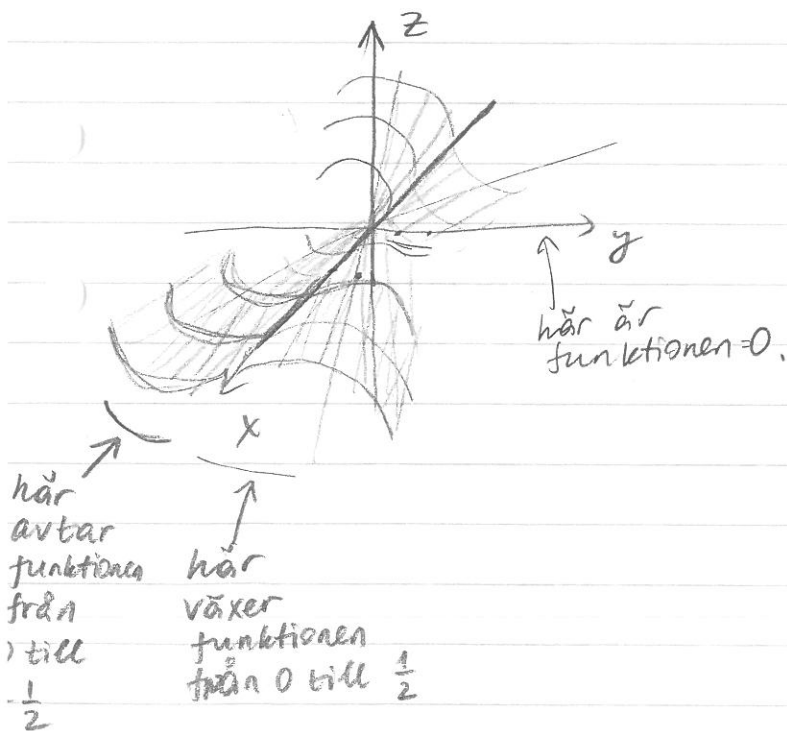 z
y
här är
funktionen=0.
x
här
avtar
funktionen
från
) till
-1/2
här
växer
funktionen
från 0 till 1/2